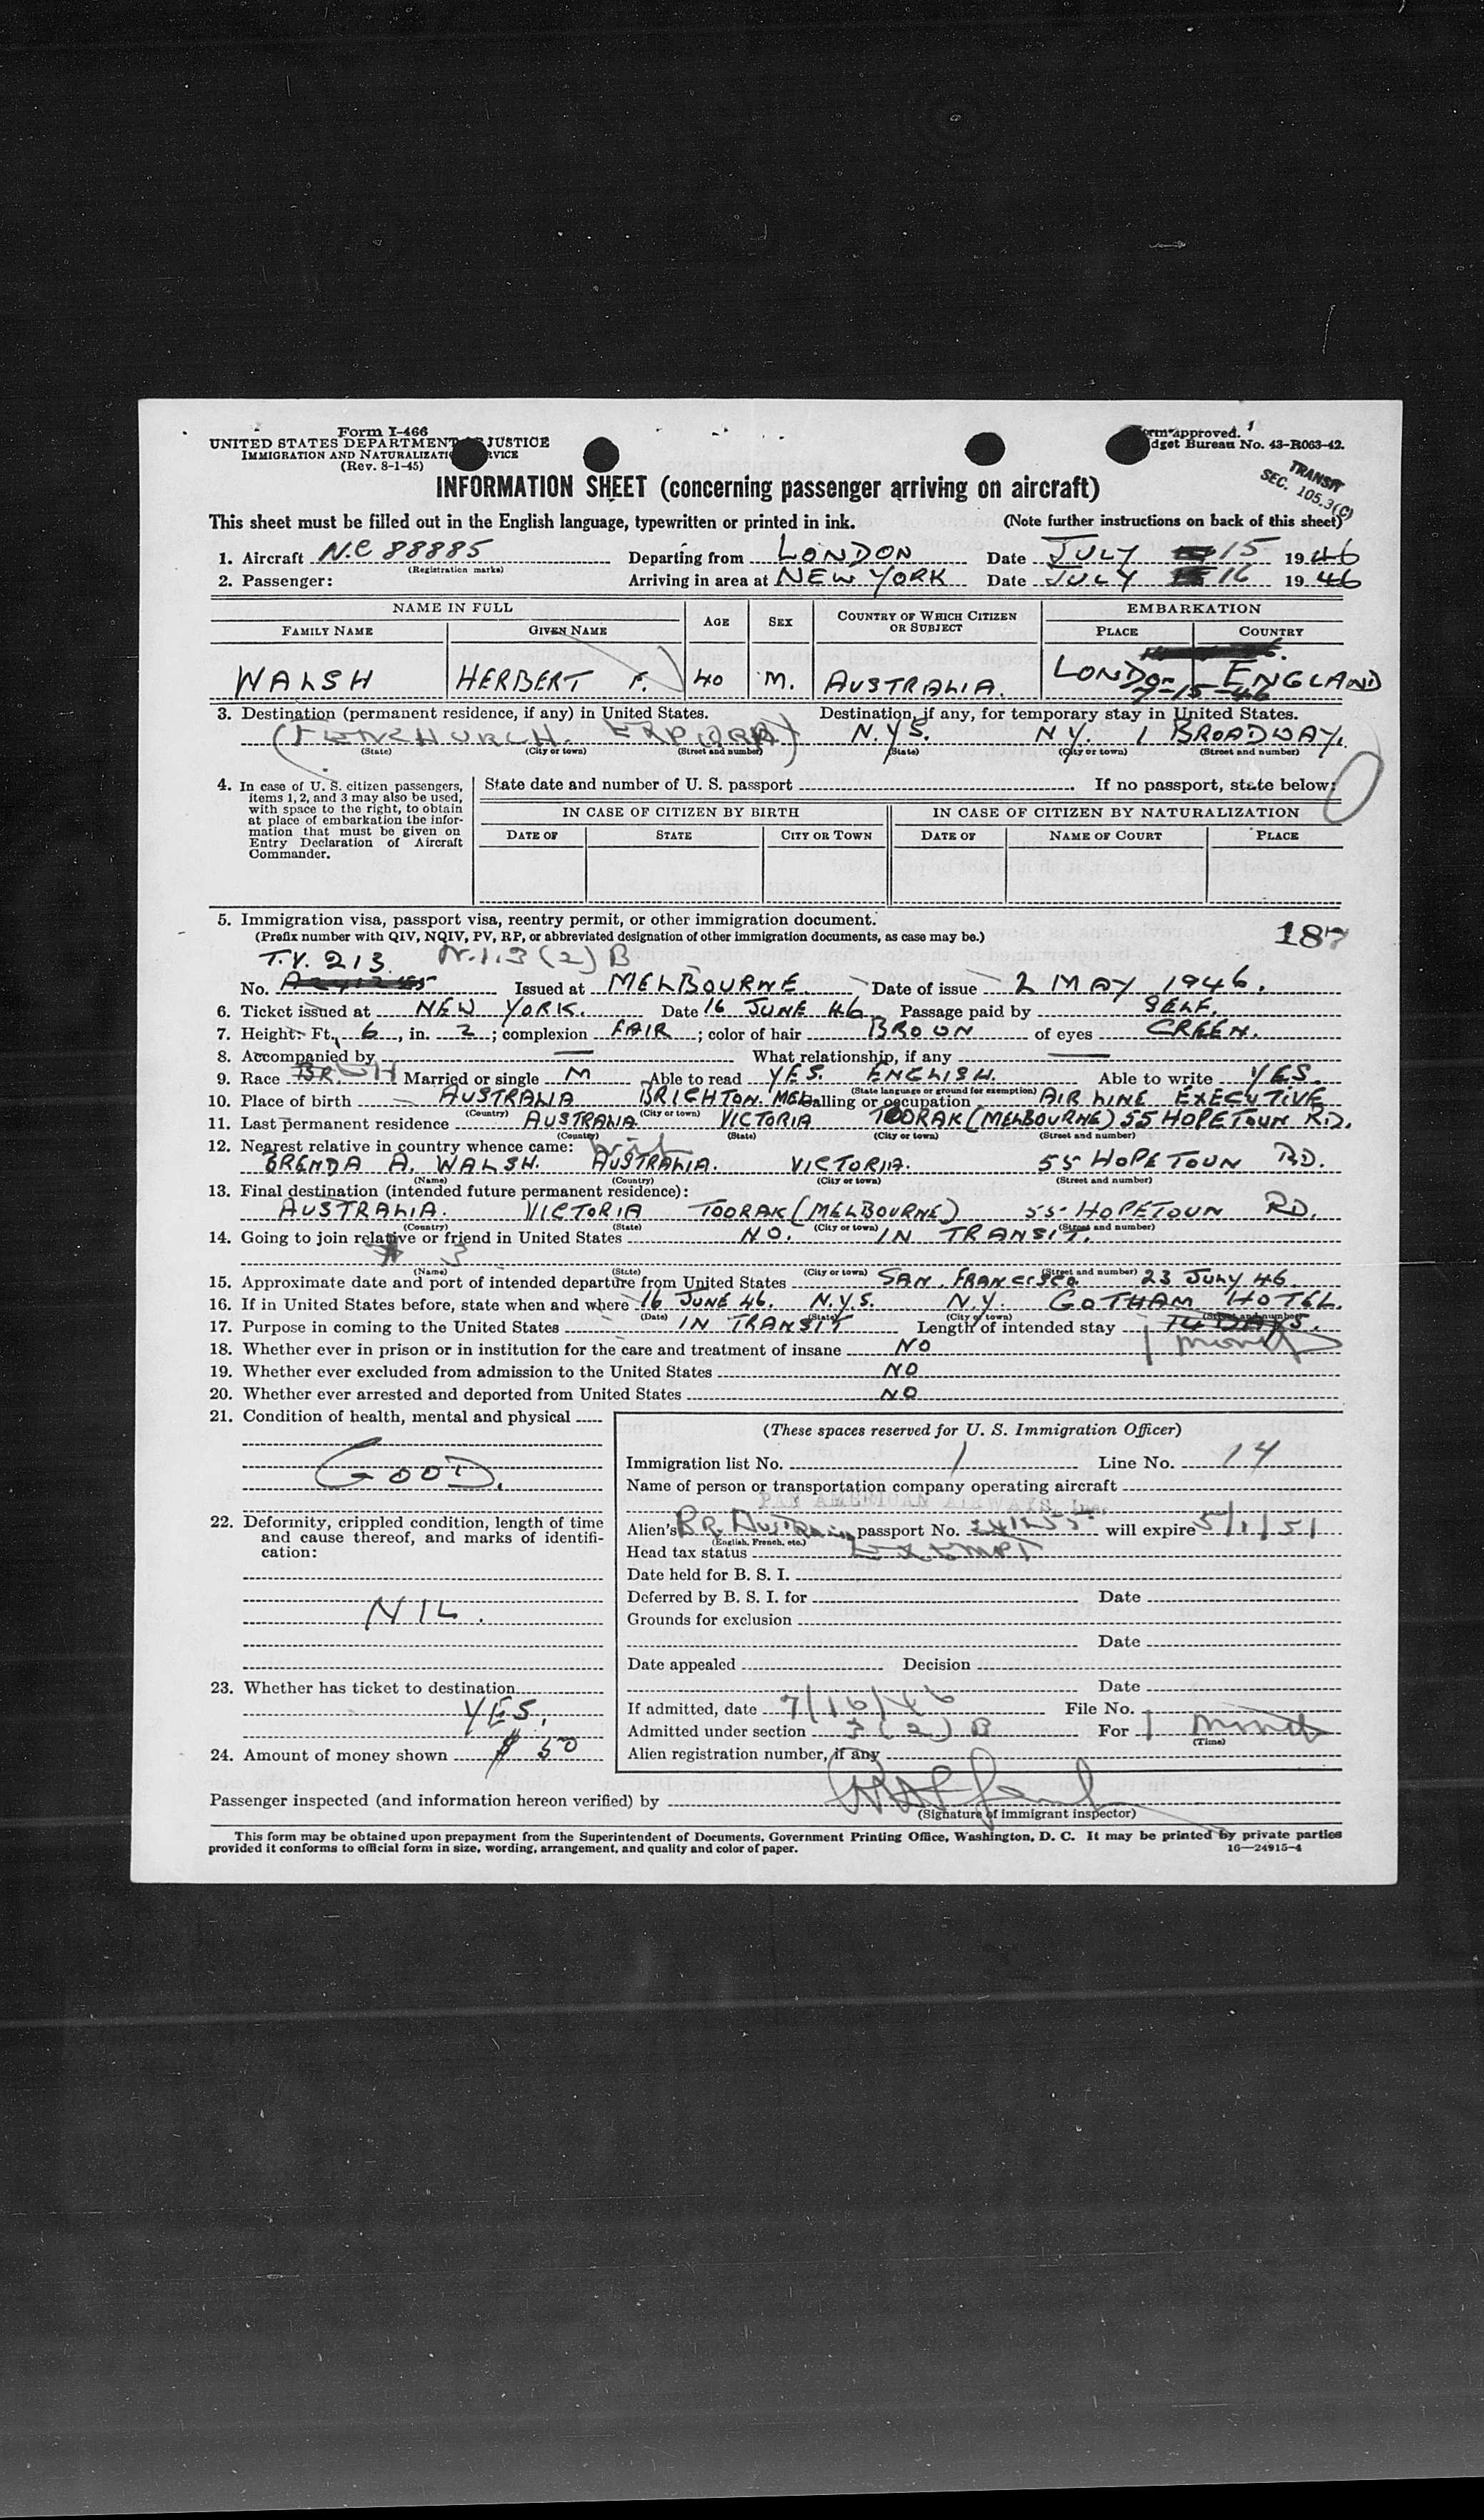 Form I-466
UNITED STATES DEPARTMENT OF JUSTICE
IMMIGRATION AND NATURALIZATION SERVICE
(Rev. 8-1-45)
Form approved.
Budget Bureau No. 43-R063-42.
TRANSIT
SEC. 105.3(C)
INFORMATION SHEET (concerning passenger arriving on aircraft)
This sheet must be filled out in the English language, typewritten or printed in ink. (Note further instructions on back of this sheet)
1. Aircraft N.C 88885 Departing from LONDON Date JULY 15 1946
(Registration marks)
2. Passenger: Arriving in area at NEW YORK Date JULY 16 1946
NAME IN FULL AGE SEX COUNTRY OF WHICH CITIZEN OR SUBJECT EMBARKATION
FAMILY NAME GIVEN NAME PLACE COUNTRY
WALSH HERBERT F. 40 M. AUSTRALIA. LONDON ENGLAND
7-15-46
3. Destination (permanent residence, if any) in United States. Destination, if any, for temporary stay in United States.
(FENCHURCH N.Y.S. N.Y. 1 BROADWAY.
(State) (City or town) (Street and number) (State) (City or town) (Street and number)
4. In case of U. S. citizen passengers, items 1, 2, and 3 may also be used, with space to the right, to obtain at place of embarkation the information that must be given on Entry Declaration of Aircraft Commander.
State date and number of U. S. passport If no passport, state below: 0
IN CASE OF CITIZEN BY BIRTH IN CASE OF CITIZEN BY NATURALIZATION
DATE OF STATE CITY OR TOWN DATE OF NAME OF COURT PLACE
5. Immigration visa, passport visa, reentry permit, or other immigration document.
(Prefix number with QIV, NQIV, PV, RP, or abbreviated designation of other immigration documents, as case may be.) 187
T.V. 213 N.I. 3 (2) B
No. Issued at MELBOURNE Date of issue 2 MAY 1946.
6. Ticket issued at NEW YORK. Date 16 JUNE 46 Passage paid by SELF.
7. Height: Ft. 6, in. 2; complexion FAIR; color of hair BROWN of eyes GREEN.
8. Accompanied by — What relationship, if any —
9. Race Married or single M Able to read YES. ENGLISH. Able to write YES.
(State language or ground for exemption)
10. Place of birth AUSTRALIA BRIGHTON. MEL Calling or occupation AIR LINE EXECUTIVE
(Country) (City or town)
11. Last permanent residence AUSTRALIA. VICTORIA TOORAK (MELBOURNE) 55 HOPETOUN RD.
(Country) (State) (City or town) (Street and number)
12. Nearest relative in country whence came: wife
BRENDA A. WALSH. AUSTRALIA. VICTORIA. 55 HOPETOUN RD.
(Name) (Country) (City or town) (Street and number)
13. Final destination (intended future permanent residence):
AUSTRALIA. VICTORIA TOORAK (MELBOURNE) 55 HOPETOUN RD.
(Country) (State) (City or town) (Street and number)
14. Going to join relative or friend in United States NO. IN TRANSIT.
# 3
(Name) (State) (City or town) (Street and number)
15. Approximate date and port of intended departure from United States SAN. FRANCISCO 23 JULY 46
16. If in United States before, state when and where 16 JUNE 46. N.Y.S. N.Y. GOTHAM HOTEL.
(Date) (State) (City or town) (Street and number)
17. Purpose in coming to the United States IN TRANSIT Length of intended stay 14 DAYS.
1 month
18. Whether ever in prison or in institution for the care and treatment of insane NO
19. Whether ever excluded from admission to the United States NO
20. Whether ever arrested and deported from United States NO
21. Condition of health, mental and physical
GOOD.
22. Deformity, crippled condition, length of time and cause thereof, and marks of identification:
NIL.
23. Whether has ticket to destination
YES.
24. Amount of money shown $ 50
(These spaces reserved for U. S. Immigration Officer)
Immigration list No. 1 Line No. 14
Name of person or transportation company operating aircraft
PAN AMERICAN AIRWAYS, Inc.
Alien's BR. Australian passport No. will expire 5/1/51
(English, French, etc.)
Head tax status EXEMPT
Date held for B. S. I.
Deferred by B. S. I. for Date
Grounds for exclusion
Date
Date appealed Decision
Date
If admitted, date 7/16/46 File No.
Admitted under section 3 (2) B For 1 month
(Time)
Alien registration number, if any
Passenger inspected (and information hereon verified) by
(Signature of immigrant inspector)
This form may be obtained upon prepayment from the Superintendent of Documents, Government Printing Office, Washington, D. C. It may be printed by private parties
provided it conforms to official form in size, wording, arrangement, and quality and color of paper. 16—24915-4